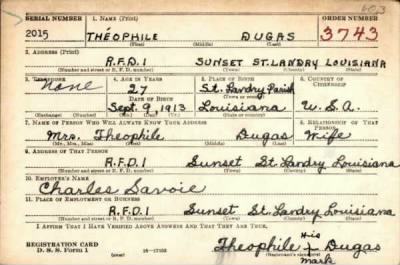 603
SERIAL NUMBER 1. NAME (Print) ORDER NUMBER
2015 THÉOPHILE DUGAS 3743
(First) (Middle) (Last)
2. ADDRESS (Print)
R.F.D.1 SUNSET ST. LANDRY LOUISIANA
(Number and street or R. F. D. number) (Town) (County) (State)
3. TELEPHONE 4. AGE IN YEARS 5. PLACE OF BIRTH 6. COUNTRY OF CITIZENSHIP
None 27 St. Landry Parish
DATE OF BIRTH
Sept. 9 1913 Louisiana U.S.A.
7. NAME OF PERSON WHO WILL ALWAYS KNOW YOUR ADDRESS 8. RELATIONSHIP OF THAT PERSON
Mrs. Theophile Dugas Wife
(Mr., Mrs., Miss) (First) (Middle) (Last)
9. ADDRESS OF THAT PERSON
R.F.D.1 Sunset St. Landry Louisiana
(Number and street or R. F. D. number) (Town) (County) (State)
10. EMPLOYER'S NAME
Charles Savoie
11. PLACE OF EMPLOYMENT OR BUSINESS
R.F.D.1 Sunset St. Landry Louisiana
(Number and street or R. F. D. number) (Town) (County) (State)
I AFFIRM THAT I HAVE VERIFIED ABOVE ANSWERS AND THAT THEY ARE TRUE.
his
REGISTRATION CARD Theophile x Dugas
D. S. S. Form 1 (Registrant's signature)
mark